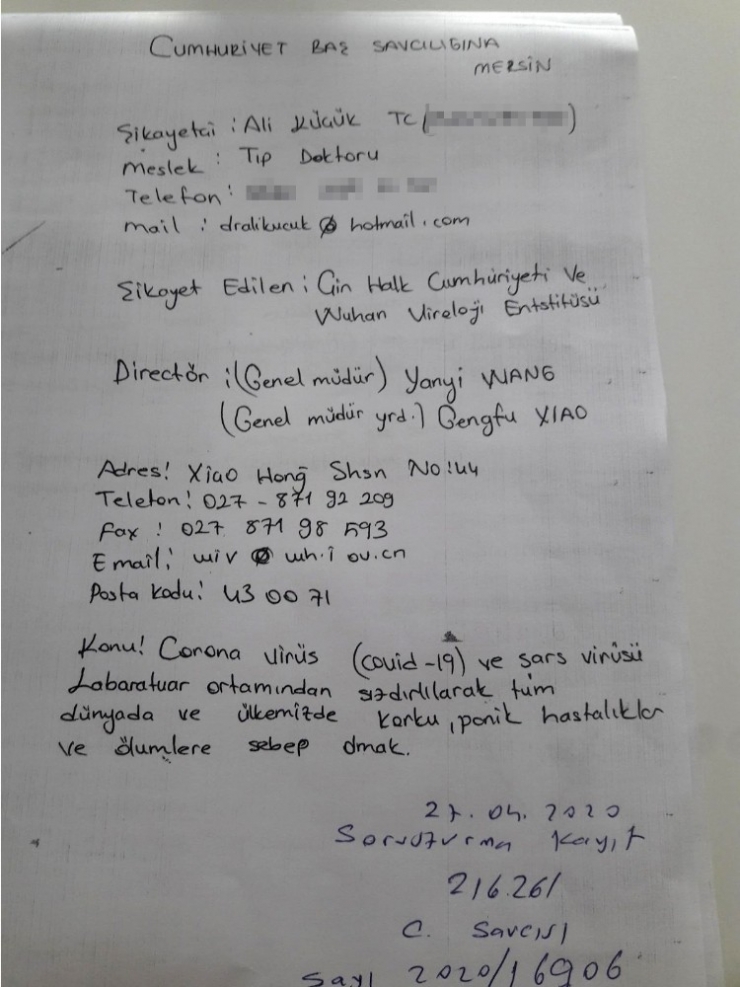 CUMHURİYET BAŞ SAVCILIĞINA
MERSİN
Şikayetci : Ali KÜÇÜK TC ( )
Meslek : Tıp Doktoru
Telefon :
mail : dralikucuk @ hotmail.com
Şikayet Edilen : Çin Halk Cumhuriyeti Ve
Wuhan Vireloji Entstitüsü
Directör : (Genel müdür) Yanyi WANG
(Genel müdür yrd.) Gengfu XIAO
Adres : Xiao Hong Shsn No : 44
Telefon : 027 - 871 92 209
Fax : 027 871 98 593
Email : wiv @ wh.i ov.cn
Posta kodu : 43 00 71
Konu : Corona virüs (covid-19) ve sars virüsü
Labaratuar ortamından sızdırılılarak tüm
dünyada ve ülkemizde korku, panik hastalıklar
ve ölumlere sebep olmak.
27.04.2020
Soruşturma Kayıt
216.261
C. Savcısı
Sayı 2020/16906